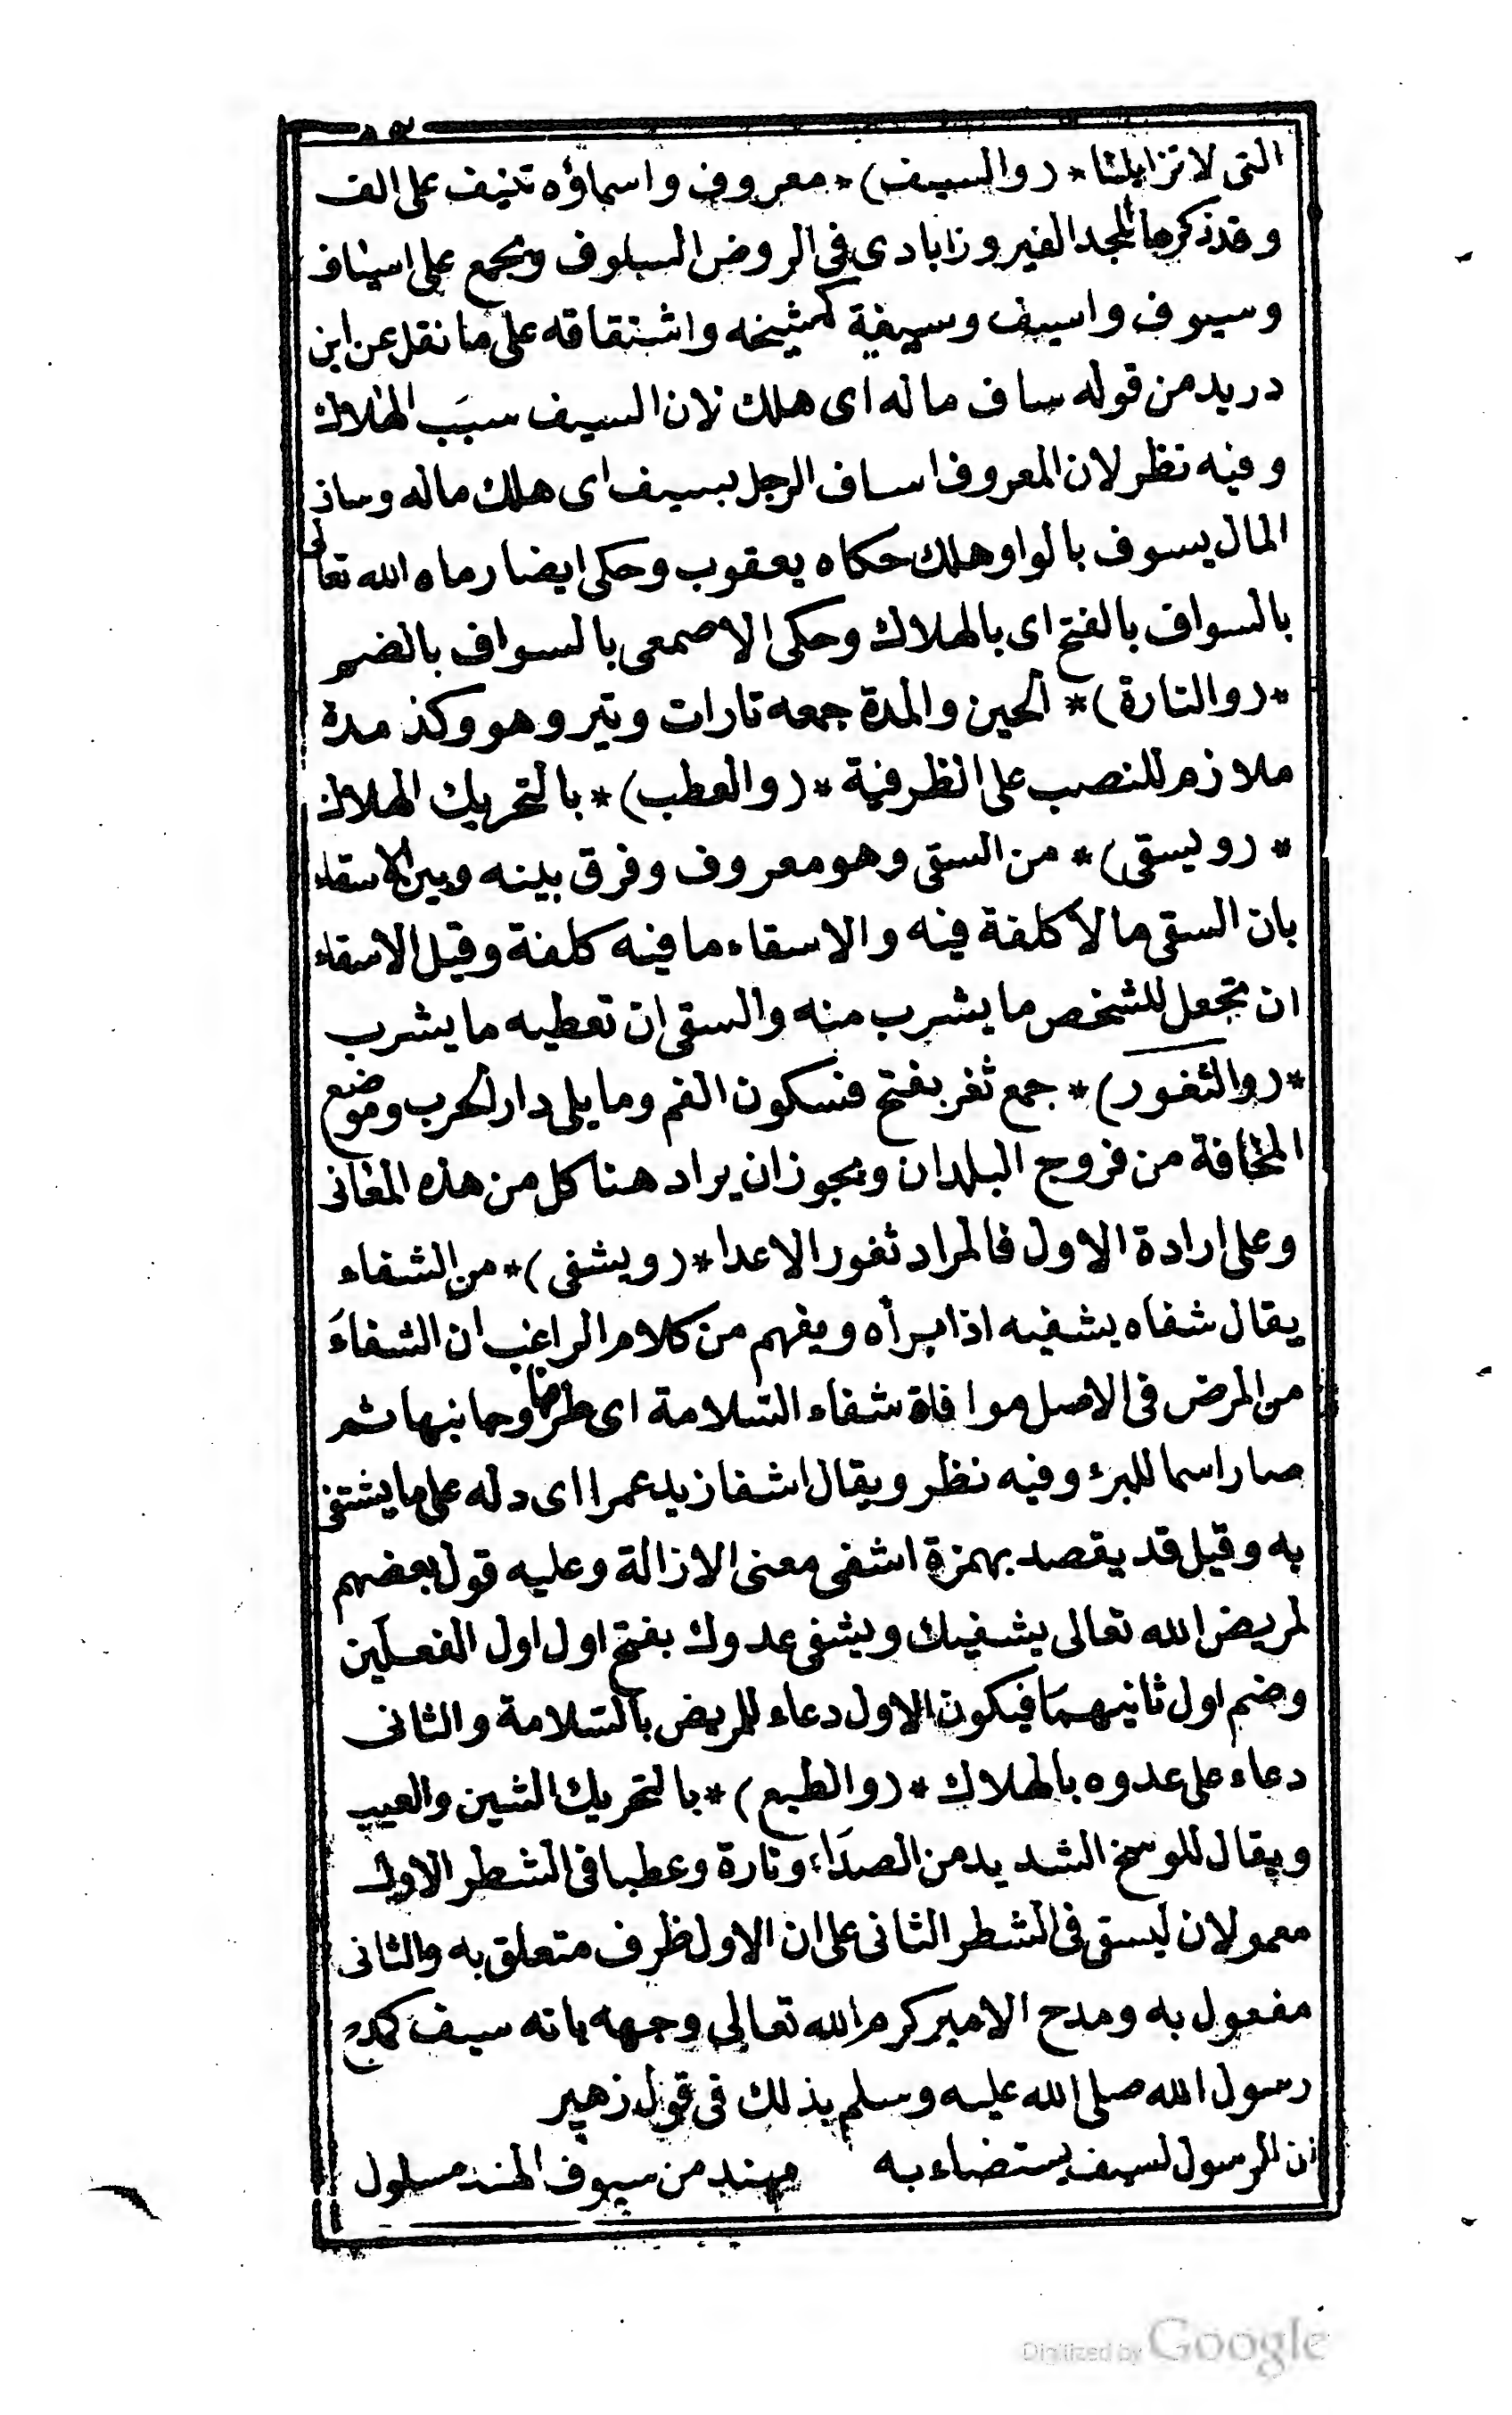 ٥٣
التى لا تزايلنا * (والسيف) * معروف واسماؤه تنيف على الف
وقد ذكرها المجد الفيروزابادى فى الروض السلوف ويجمع على اسياف
وسيوف واسيف وسيفة كمشيخه واشتقاقه على ما نقل عن ابن
دريد من قوله ساف ماله اى هلك لان السيف سبب الهلاك
وفيه نظر لان المعروف اساف الرجل يسيف اى هلك ماله وساف
المال يسوف بالواو هلك حكاه يعقوب وحكى ايضا رماه الله تعالى
بالسواف بالفتح اى بالهلاك وحكى الاصمعى بالسواف بالضم
* (والتارة) * الحين والمدة جمعه تارات وتير وهو وكذ مدة
ملازم للنصب على الظرفية * (والعطب) * بالتحريك الهلاك
* (ويسقى) * من السقى وهو معروف وفرق بينه وبين الاسقاء
بان السقى ما لا كلفة فيه والاسقاء ما فيه كلفة وقيل الاسقاء
ان تجعل للشخص ما يشرب منه والسقى ان تعطيه ما يشرب
* (والثغور) * جمع ثغر بفتح فسكون الفم وما يلى دار الحرب وموضع
المخافة من فروج البلدان ويجوز ان يراد هنا كل من هذه المعانى
وعلى ارادة الاول فالمراد ثغور الاعدا * (ويشفى) * من الشفاء
يقال شفاه يشفيه اذا برأه ويفهم من كلام الراغب ان الشفاء
من المرض فى الاصل موافاة شفاء السلامة اى طرفها وجانبها ثم
صار اسما للبرء وفيه نظر ويقال اشفا زيد عمرا اى دله على ما يشتفى
به وقيل قد يقصد بهمزة اشفى معنى الازالة وعليه قول بعضهم
لمريض الله تعالى يشفيك ويشفى عدوك بفتح اول اول الفعلين
وضم اول ثانيهما فيكون الاول دعاء للمريض بالسلامة والثانى
دعاء على عدوه بالهلاك * (والطبع) * بالتحريك الشين والعيب
ويقال للوسخ الشديد من الصداء وتارة وعطبا فى الشطر الاول
معمولان ليسقى فى الشطر الثانى على ان الاول ظرف متعلق به والثانى
مفعول به ومدح الامير كرم الله تعالى وجهه بانه سيف كمدح
رسول الله صلى الله عليه وسلم بذلك فى قول زهير
ان الرسول لسيف يستضاء به مهند من سيوف الهند مسلول
Digitized by Google